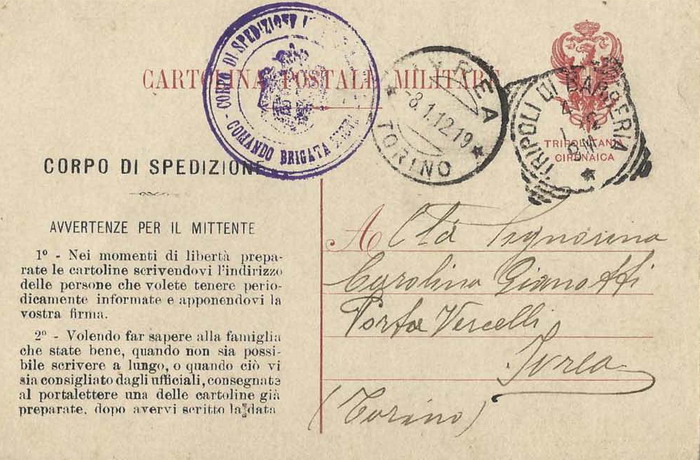 CARTOLINA POSTALE MILITARE
CORPO DI SPEDIZIONE
COMANDO BRIGATA
IVREA
-8.1.12.19
TORINO
TRIPOLI DI BARBERIA
TRIPOLITANIA
CIRENAICA
CORPO DI SPEDIZIONE
AVVERTENZE PER IL MITTENTE
1º - Nei momenti di libertà prepa-
rate le cartoline scrivendovi l'indirizzo
delle persone che volete tenere perio-
dicamente informate e apponendovi la
vostra firma.
2º - Volendo far sapere alla famiglia
che state bene, quando non sia possi-
bile scrivere a lungo, o quando ciò vi
sia consigliato dagli ufficiali, consegnate
al portalettere una delle cartoline già
preparate, dopo avervi scritto la data
A Signorina
Carolina Gianotti
Porta Vercelli
Ivrea
(Torino)